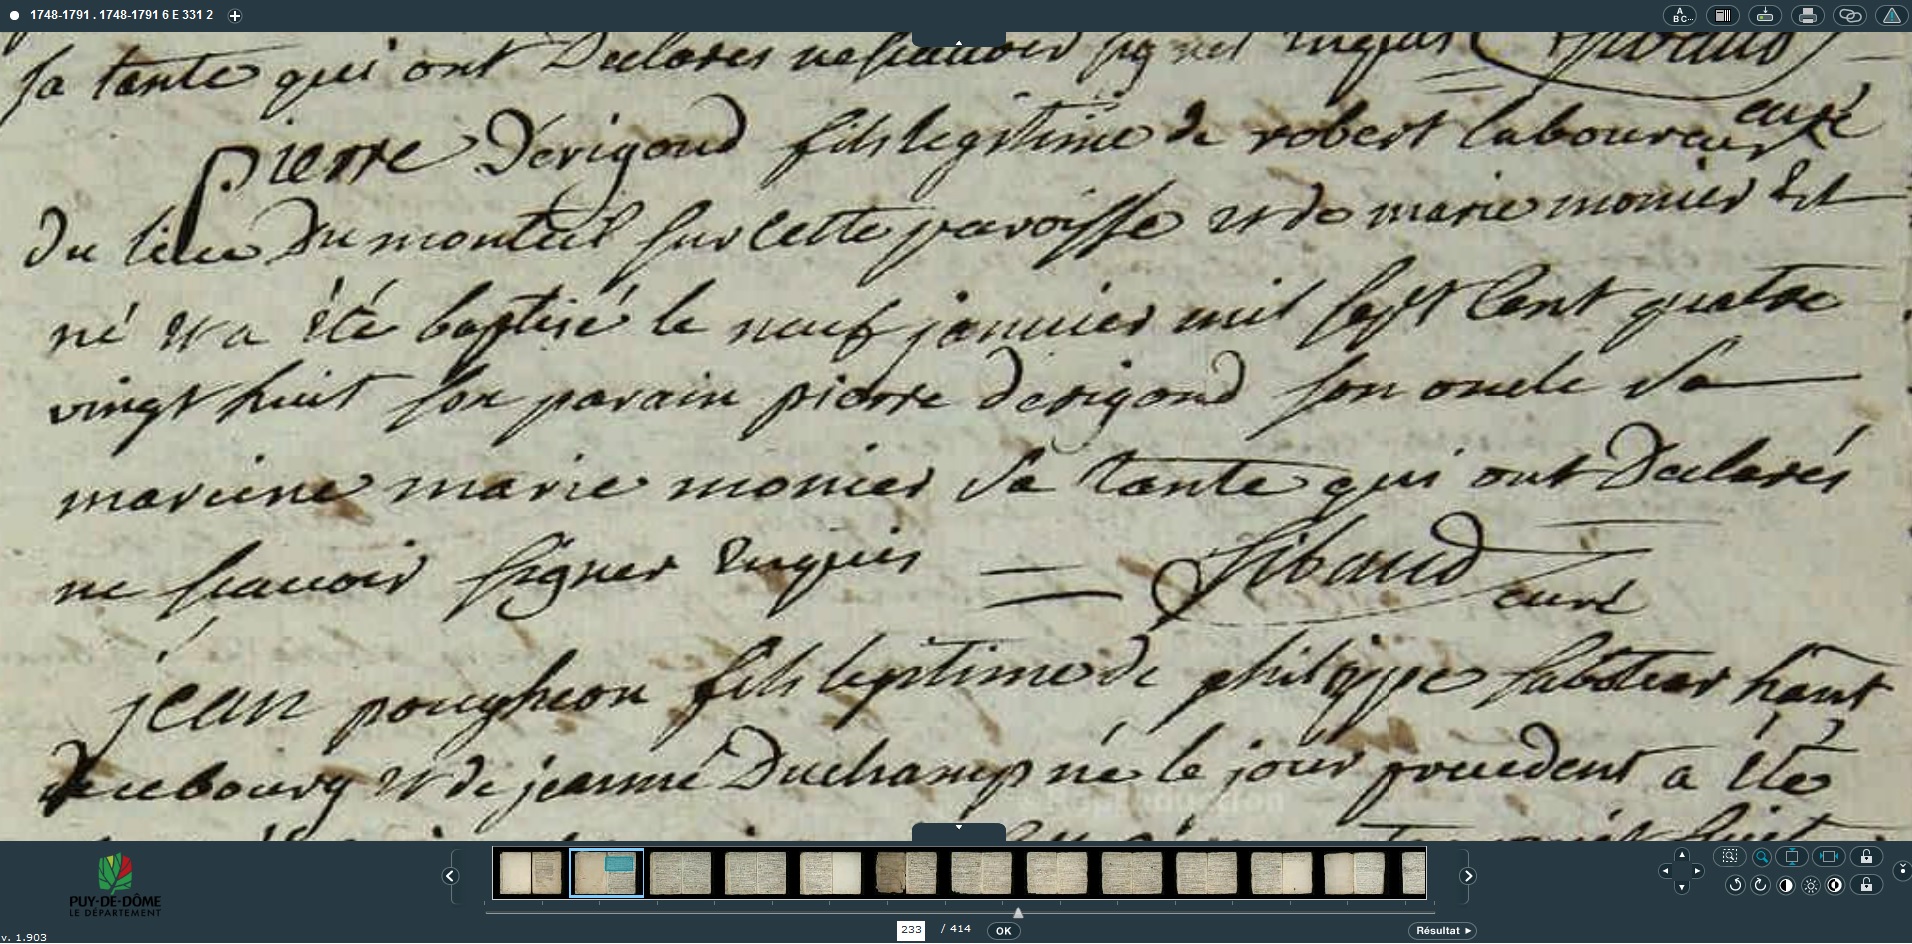 1748-1791 . 1748-1791 6 E 331 2
sa tante qui ont Declarés ne scauoir signer Enquis Sibaud
curé
Pierre Dérigond fils legitime de robert laboureur
du lieu Du monteil sur cette paroisse et de marie monier Est
né et a été baptisé le neuf januier mil sept Cent quatre
vingt huit son parain pierre derigond son oncle Sa
mareine marie monier Sa tante qui ont Declarés
ne scauoir signer Enquis = Sibaud curé
jean pougheon fils legitime de philippe sabotier hant
de ce bourg et de jeanne Duchamp né le jour precedent a été
Reproduction
PUY-DE-DÔME
LE DÉPARTEMENT
233 / 414 OK
Résultat
v. 1.903